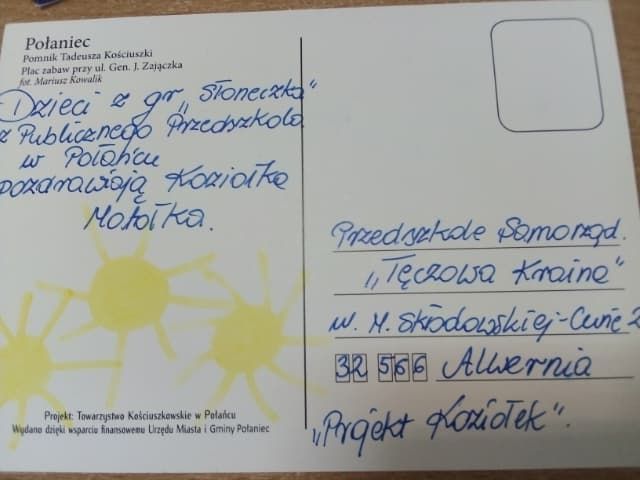 Połaniec
Pomnik Tadeusza Kościuszki
Plac zabaw przy ul. Gen. J. Zajączka
fot. Mariusz Kowalik
Dzieci z gr „Słoneczka"
z Publicznego Przedszkola
w Połańcu
pozdrawiają Koziołka
Matołka.
Przedszkole Samorząd.
„Tęczowa Kraina"
ul. M. Skłodowskiej-Curie 2
32 566 Alwernia
„Projekt Koziołek".
Projekt: Towarzystwo Kościuszkowskie w Połańcu
Wydano dzięki wsparciu finansowemu Urzędu Miasta i Gminy Połaniec